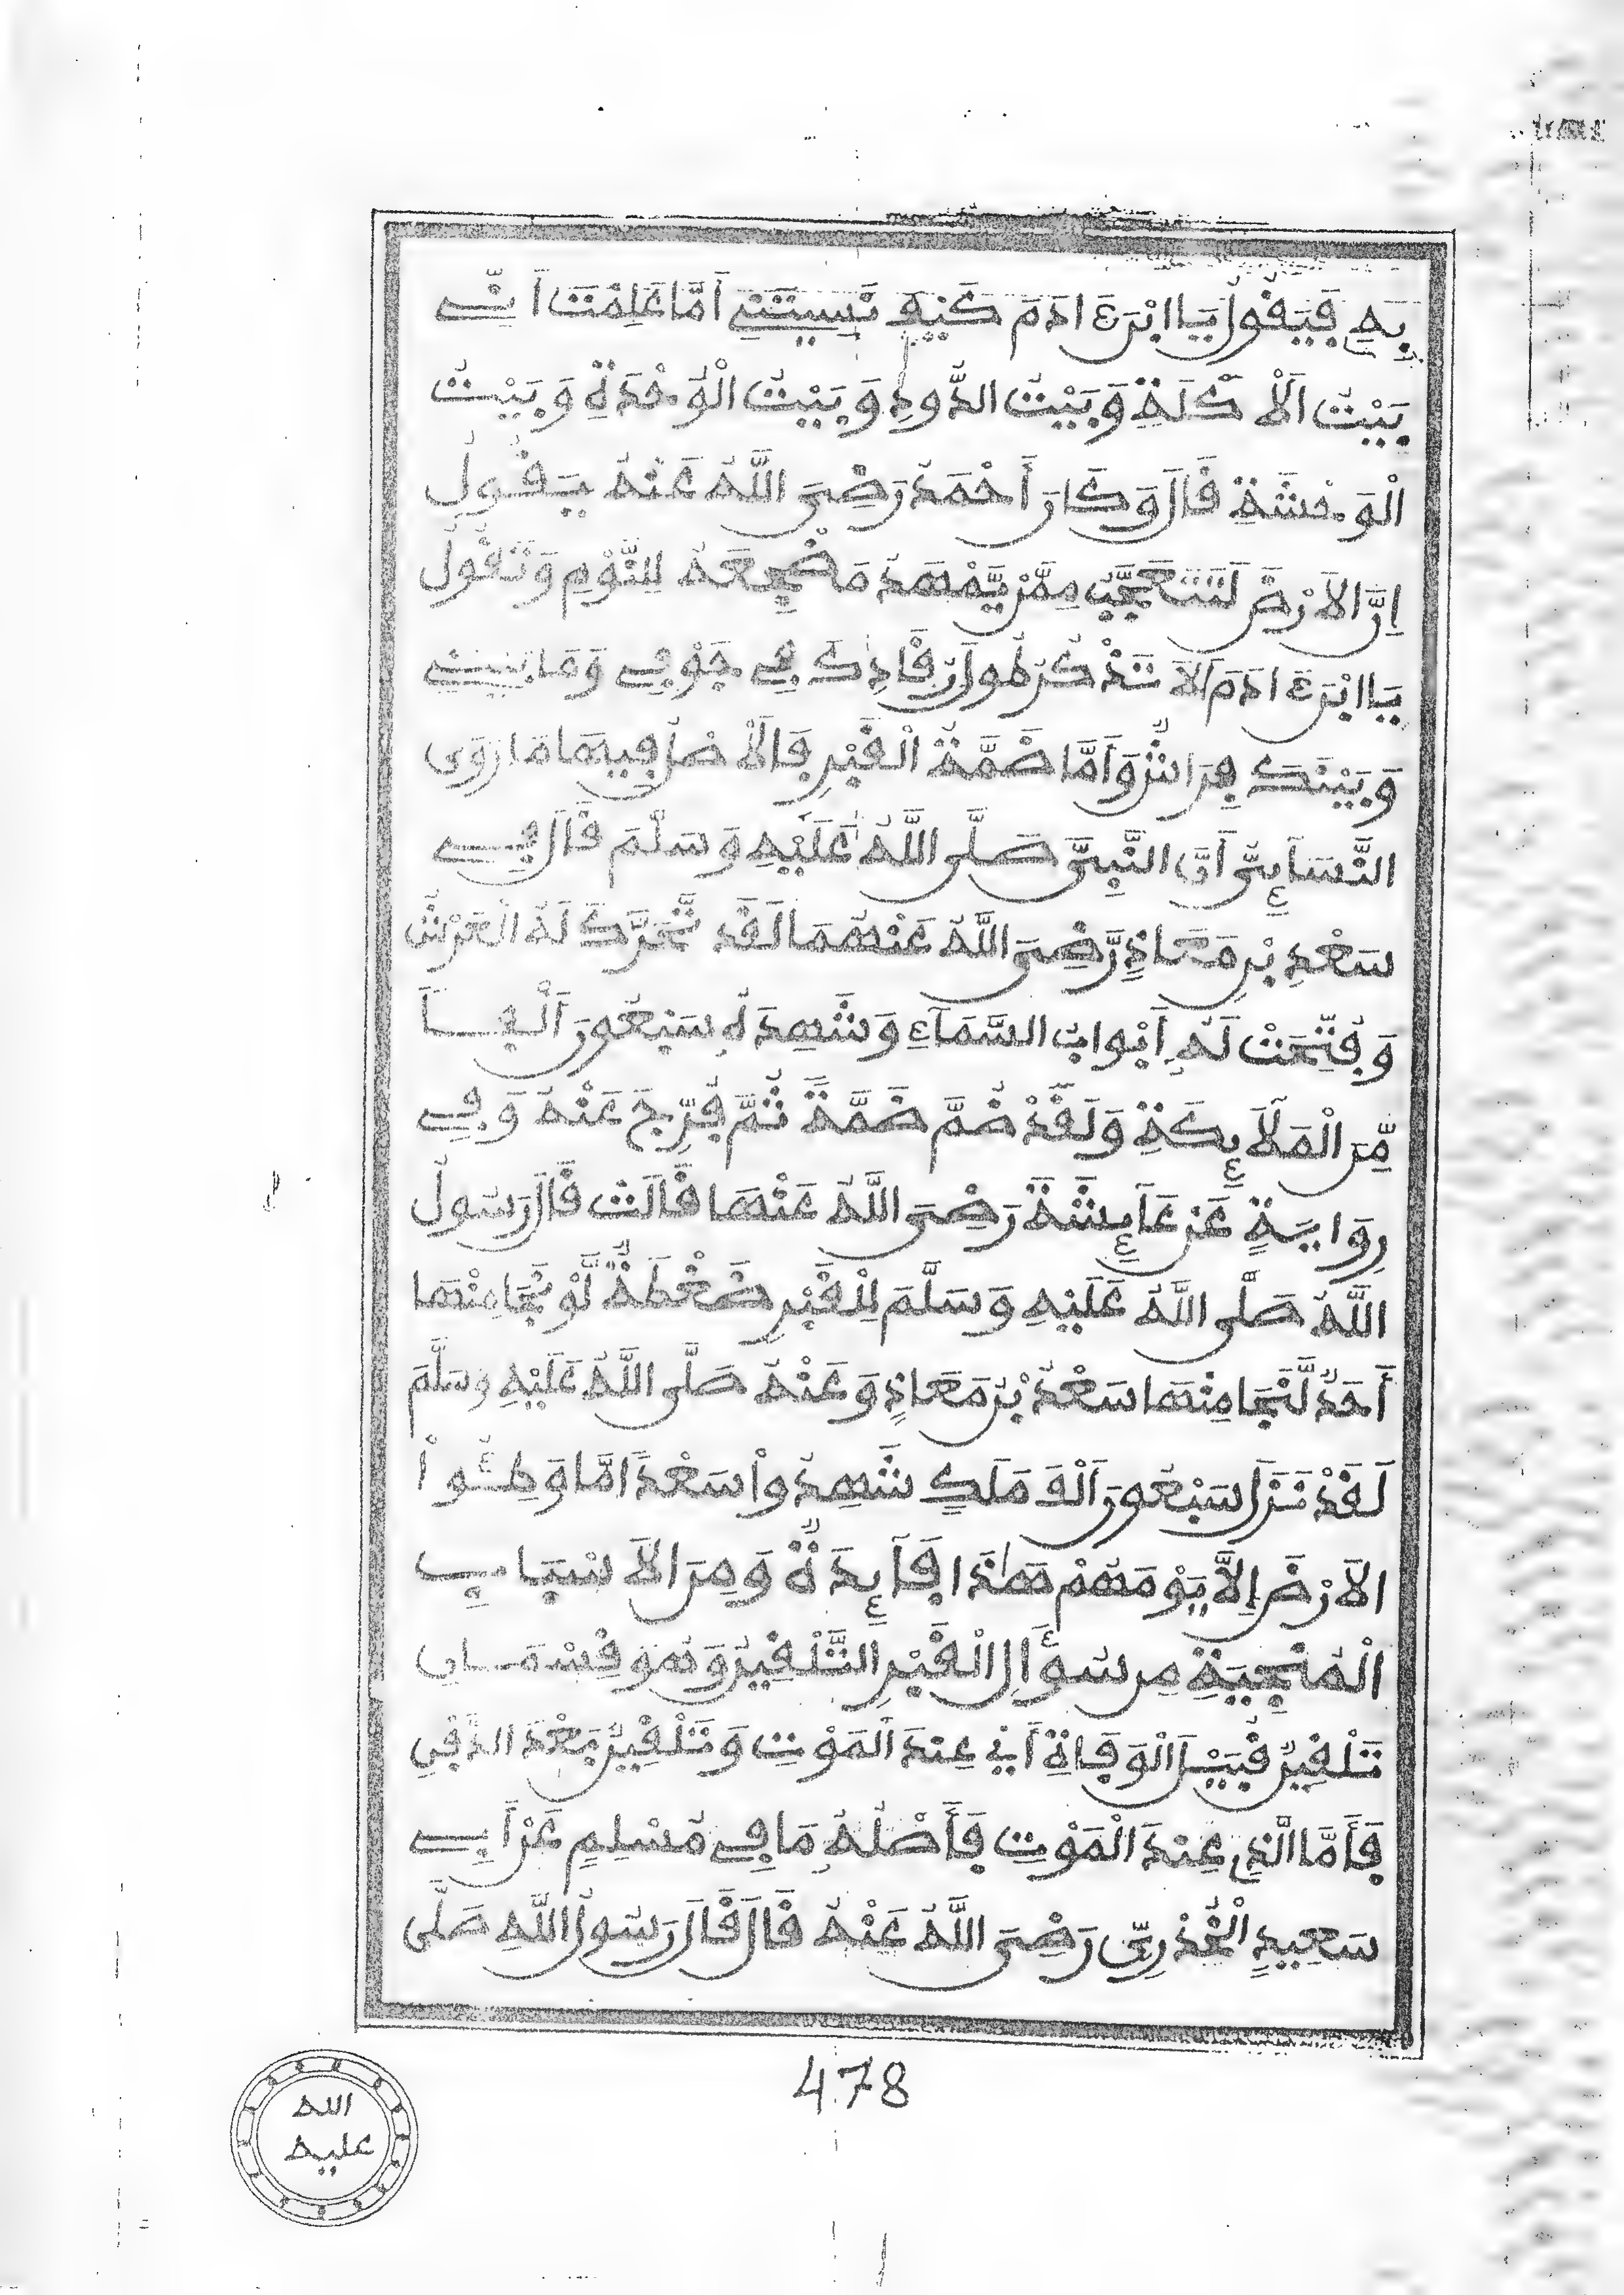 بِهِ فَيَقُولُ يَا ابْنَ ءَادَمَ كَيْفَ نَسِيتَنِي أَمَّا عَلِمْتَ أَنِّي
بَيْتُ الْأَكَلَةِ وَبَيْتُ الدُّودِ وَبَيْتُ الْوَحْدَةِ وَبَيْتُ
الْوَحْشَةِ قَالَ وَكَانَ أَحْمَدُ رَضِيَ اللَّهُ عَنْهُ يَقُولُ
إِنَّ الْأَرْضَ لَتَتَعَجَّبُ مِمَّنْ يُّمَهِّدُ مَضْجِعَهُ لِلنَّوْمِ وَتَقُولُ
يَا ابْنَ ءَادَمَ أَلَا تَذْكُرُ طُولَ رُقَادِكَ فِي جَوْفِي وَمَا بَيْنِي
وَبَيْنَكَ فِرَاشٌ وَأَمَّا ضَمَّةُ الْقَبْرِ فَالْأَصْلُ فِيهَا مَا رَوَى
النَّسَائِيُّ أَنَّ النَّبِيَّ صَلَّى اللَّهُ عَلَيْهِ وَسَلَّمَ قَالَ فِي
سَعْدِ بْنِ مَعَاذٍ رَّضِيَ اللَّهُ عَنْهُمَا لَقَدْ تَّحَرَّكَ لَهُ الْعَرْشُ
وَفُتِّحَتْ لَهُ أَبْوَابُ السَّمَاءِ وَشَهِدَهُ سَبْعُونَ أَلْفًا
مِّنَ الْمَلَائِكَةِ وَلَقَدْ ضُمَّ ضَمَّةً ثُمَّ فُرِّجَ عَنْهُ وَفِي
رِوَايَةٍ عَنْ عَائِشَةَ رَضِيَ اللَّهُ عَنْهَا قَالَتْ قَالَ رَسُولُ
اللَّهِ صَلَّى اللَّهُ عَلَيْهِ وَسَلَّمَ لِلْقَبْرِ ضَغْطَةٌ لَّوْ نَجَا مِنْهَا
أَحَدٌ لَّنَجَا مِنْهَا سَعْدُ بْنُ مَعَاذٍ وَعَنْهُ صَلَّى اللَّهُ عَلَيْهِ وَسَلَّمَ
لَقَدْ نَزَلَ سَبْعُونَ أَلْفَ مَلَكٍ شَهِدُواْ سَعْدًا مَّا وَطِئُواْ
الْأَرْضَ إِلَّا يَوْمَهُمْ هَٰذَا فَائِدَةٌ وَمِنَ الْأَسْبَابِ
الْمُنْجِيَةِ مِن سُؤَالِ الْقَبْرِ التَّلْقِينُ وَهُوَ قِسْمَانِ
تَلْقِينٌ قُبَيْلَ الْوَفَاةِ أَيْ عِندَ الْمَوْتِ وَتَلْقِينٌ بَعْدَ الدَّفْنِ
فَأَمَّا الَّذِي عِنْدَ الْمَوْتِ فَأَصْلُهُ مَا فِي مُسْلِمٍ عَنْ أَبِي
سَعِيدٍ الْخُدْرِيِّ رَضِيَ اللَّهُ عَنْهُ قَالَ قَالَ رَسُولُ اللَّهِ صَلَّى
478
الله
عليه